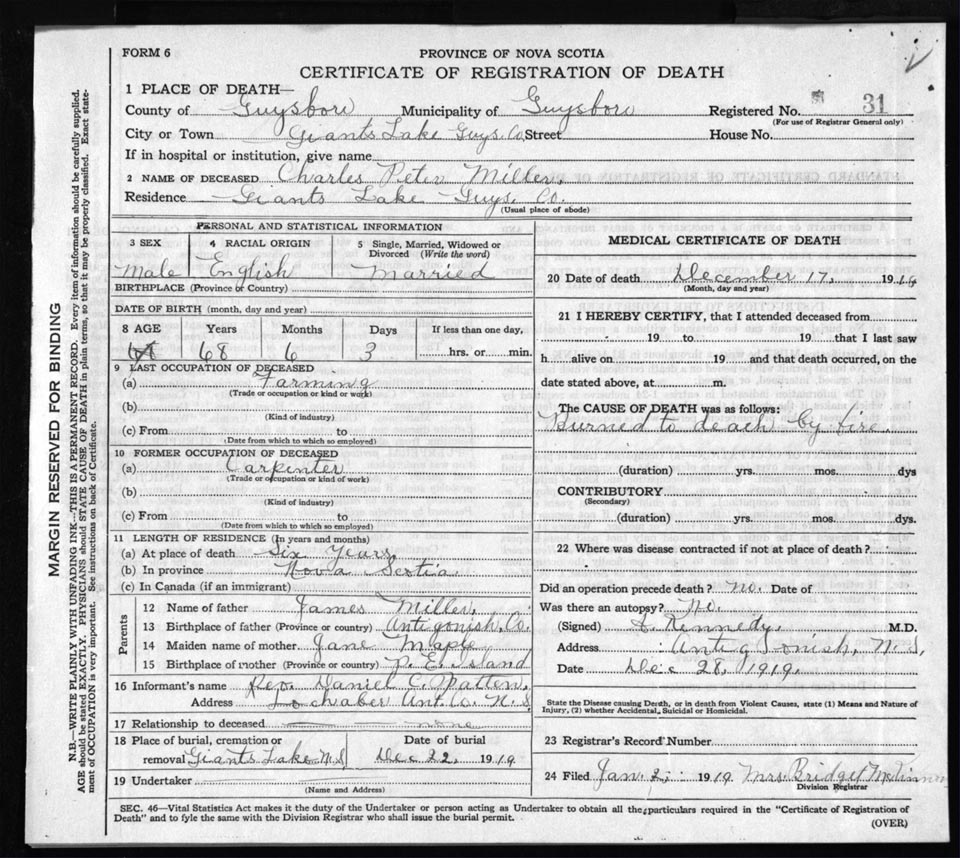 FORM 6
PROVINCE OF NOVA SCOTIA
CERTIFICATE OF REGISTRATION OF DEATH
1 PLACE OF DEATH—
County of Guysboro Municipality of Guysboro Registered No. 31
(For use of Registrar General only)
City or Town Giants Lake Guys. Co. Street House No.
If in hospital or institution, give name
2 NAME OF DECEASED Charles Peter Miller.
Residence Giants Lake Guys. Co.
(Usual place of abode)
PERSONAL AND STATISTICAL INFORMATION
3 SEX 4 RACIAL ORIGIN 5 Single, Married, Widowed or Divorced (Write the word)
Male English Married
BIRTHPLACE (Province or Country)
DATE OF BIRTH (month, day and year)
8 AGE Years Months Days If less than one day,
68 6 3 hrs. or min.
9 LAST OCCUPATION OF DECEASED
(a) Farming
(Trade or occupation or kind or work)
(b)
(Kind of industry)
(c) From to
(Date from which to which so employed)
10 FORMER OCCUPATION OF DECEASED
(a) Carpinter
(Trade or occupation or kind of work)
(b)
(Kind of industry)
(c) From to
(Date from which to which so employed)
11 LENGTH OF RESIDENCE (In years and months)
(a) At place of death Six Years,
(b) In province Nova Scotia
(c) In Canada (if an immigrant)
Parents
12 Name of father James Miller,
13 Birthplace of father (Province or country) Antigonish, Co.
14 Maiden name of mother Jane Maple
15 Birthplace of mother (Province or country) P. E. Island
16 Informant's name Rev. Daniel C. Matten,
Address Lochaber Ant. Co. N. S
17 Relationship to deceased none
18 Place of burial, cremation or Date of burial
removal Giants Lake N.S Dec 22, 1919
19 Undertaker
(Name and Address)
MEDICAL CERTIFICATE OF DEATH
20 Date of death December 17, 1919
(Month, day and year)
21 I HEREBY CERTIFY, that I attended deceased from
19 to 19 that I last saw
h alive on 19 and that death occurred, on the
date stated above, at m.
The CAUSE OF DEATH was as follows:
Burned to death by fire
(duration) yrs. mos. dys
CONTRIBUTORY
(Secondary)
(duration) yrs. mos. dys.
22 Where was disease contracted if not at place of death?
Did an operation precede death? No. Date of
Was there an autopsy? No.
(Signed) A. Kennedy, M.D.
Address Antigonish, N.S,
Date Dec 28, 1919.
State the Disease causing Derth, or in death from Violent Causes, state (1) Means and Nature of
Injury, (2) whether Accidental, Suicidal or Homicidal.
23 Registrar's Record Number
24 Filed Jan. 2, 1919 Mrs. Bridget McKinnon
Division Registrar
SEC. 46—Vital Statistics Act makes it the duty of the Undertaker or person acting as Undertaker to obtain all the particulars required in the "Certificate of Registration of
Death" and to fyle the same with the Division Registrar who shall issue the burial permit.
(OVER)
MARGIN RESERVED FOR BINDING
N.B.—WRITE PLAINLY WITH UNFADING INK—THIS IS A PERMANENT RECORD. Every item of information should be carefully supplied.
AGE should be stated EXACTLY. PHYSICIANS should STATE CAUSE OF DEATH in plain terms, so that it may be properly classified. Exact state-
ment of OCCUPATION is very important. See instructions on back of Certificate.